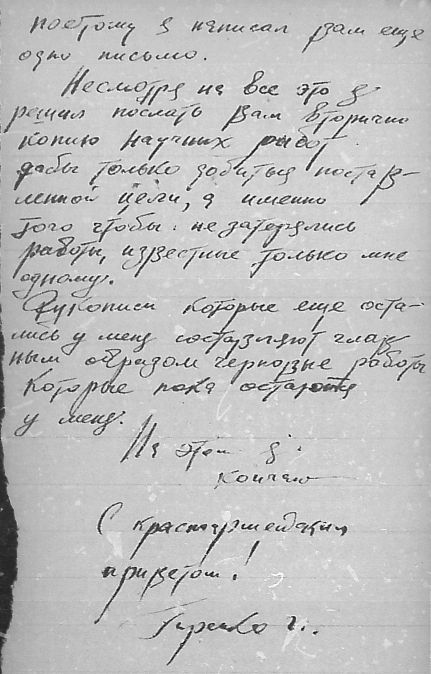 поетому я написал вам еще
одно письмо.
Несмотря на все это я
решил послать вам вторично
копию научных работ
дабы только добиться постав-
ленной цели, а именно
того чтобы не затерялись
работы, известные только мне
одному.
Рукописи которые еще оста-
лись у меня составляют глав-
ным образом черновые работы
которые пока остаются
у меня.
На этом я
кончаю
С красноармейским
приветом!